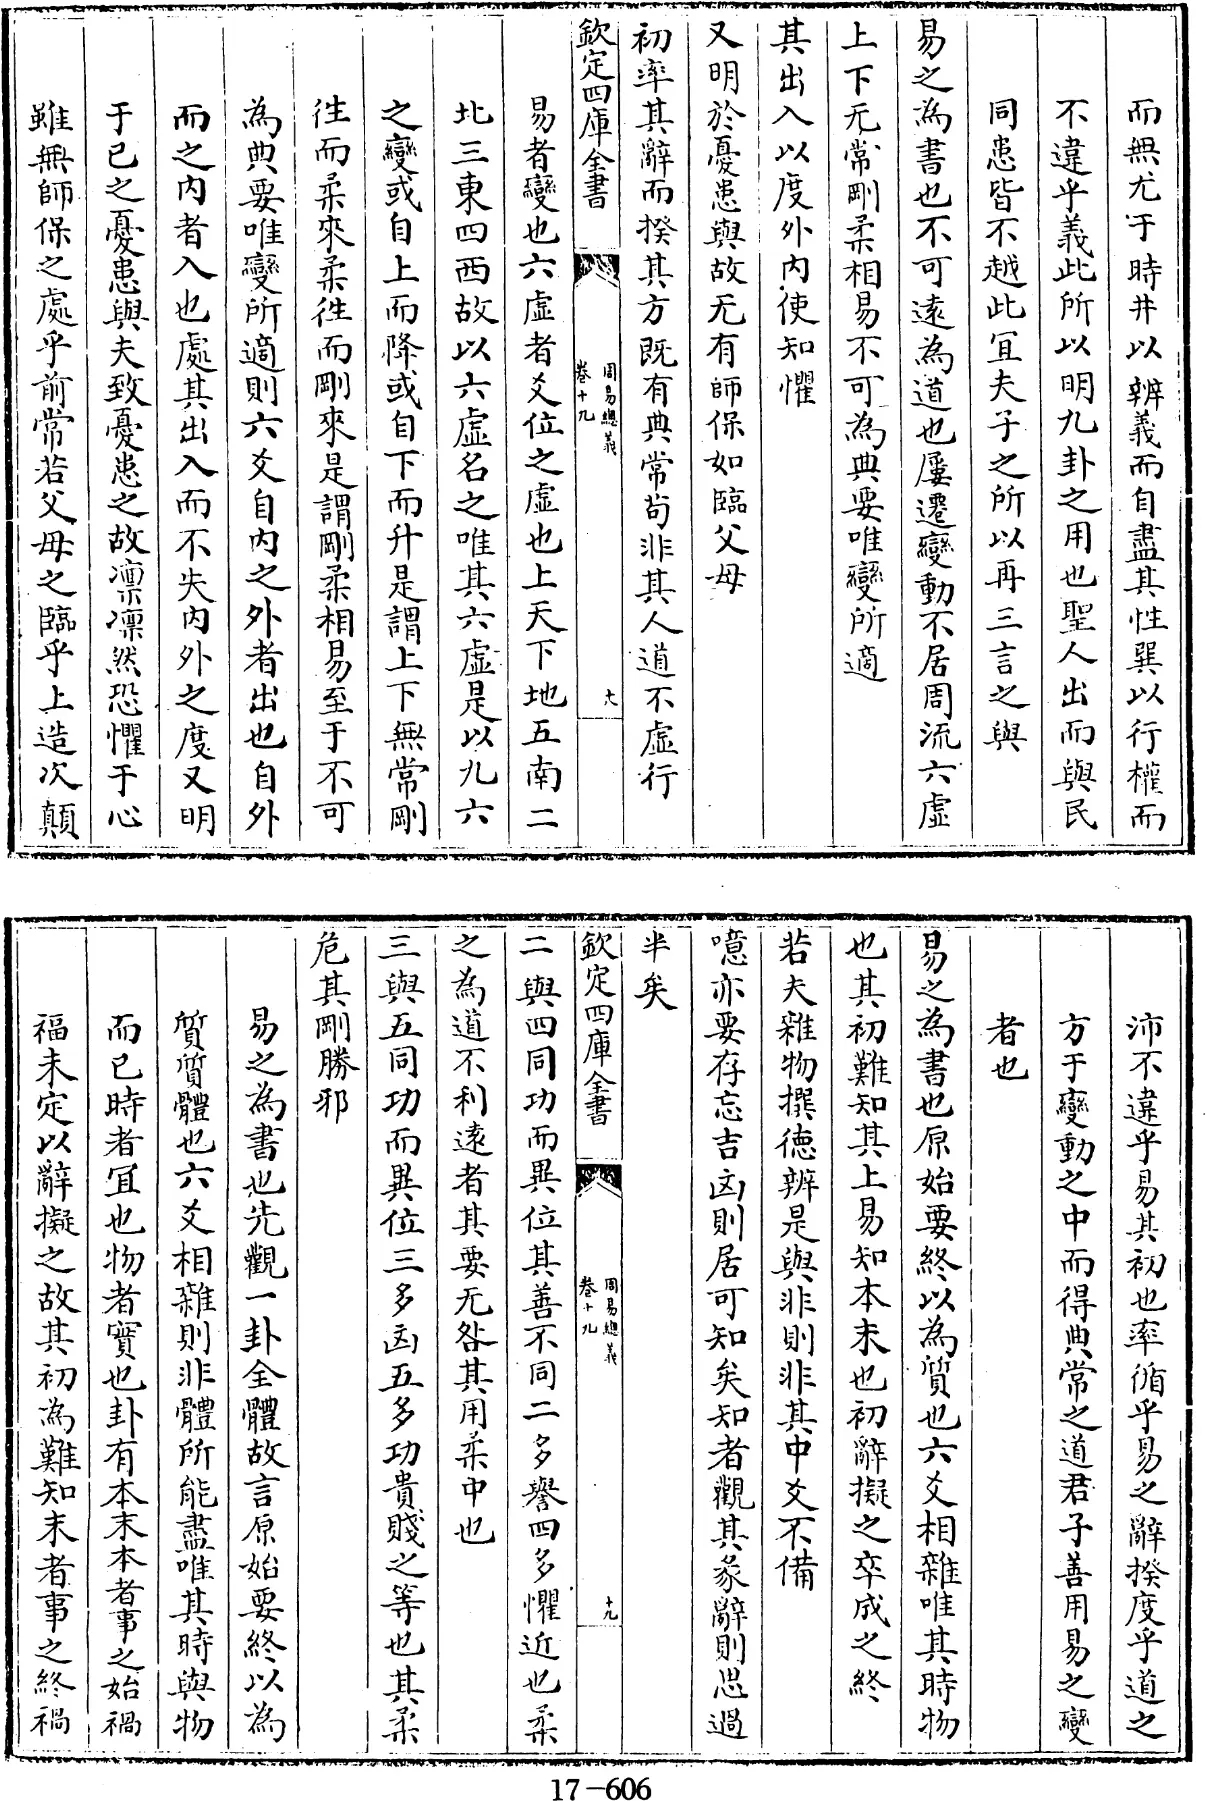 而無尤于時井以辨義而自盡其性巽以行權而
不違乎義此所以明九卦之用也聖人出而與民
同患皆不越此宜夫子之所以再三言之與
易之為書也不可遠為道也屢遷變動不居周流六虛
上下无常剛柔相易不可為典要唯變所適
其出入以度外内使知懼
又明於憂患與故无有師保如臨父母
初率其辭而揆其方既有典常苟非其人道不虛行
欽定四庫全書
周易總義
卷十九
易者變也六虛者爻位之虛也上天下地五南二
北三東四西故以六虛名之唯其六虛是以九六
之變或自上而降或自下而升是謂上下無常剛
徃而柔來柔徃而剛來是謂剛柔相易至于不可
為典要唯變所適則六爻自内之外者出也自外
而之内者入也處其出入而不失内外之度又明
于已之憂患與夫致憂患之故凛凛然恐懼于心
雖無師保之處乎前常若父母之臨乎上造次顛
沛不違乎易其初也率循乎易之辭揆度乎道之
方于變動之中而得典常之道君子善用易之變
者也
易之為書也原始要終以為質也六爻相雜唯其時物
也其初難知其上易知本末也初辭擬之卒成之終
若夫雜物撰德辨是與非則非其中爻不備
噫亦要存亡吉凶則居可知矣知者觀其彖辭則思過
半矣
欽定四庫全書
周易總義
卷十九
十九
二與四同功而異位其善不同二多譽四多懼近也柔
之為道不利遠者其要无咎其用柔中也
三與五同功而異位三多凶五多功貴賤之等也其柔
危其剛勝邪
易之為書也先觀一卦全體故言原始要終以為
質質體也六爻相雜則非體所能盡唯其時與物
而已時者宜也物者實也卦有本末本者事之始禍
福未定以辭擬之故其初為難知末者事之終禍
17-606